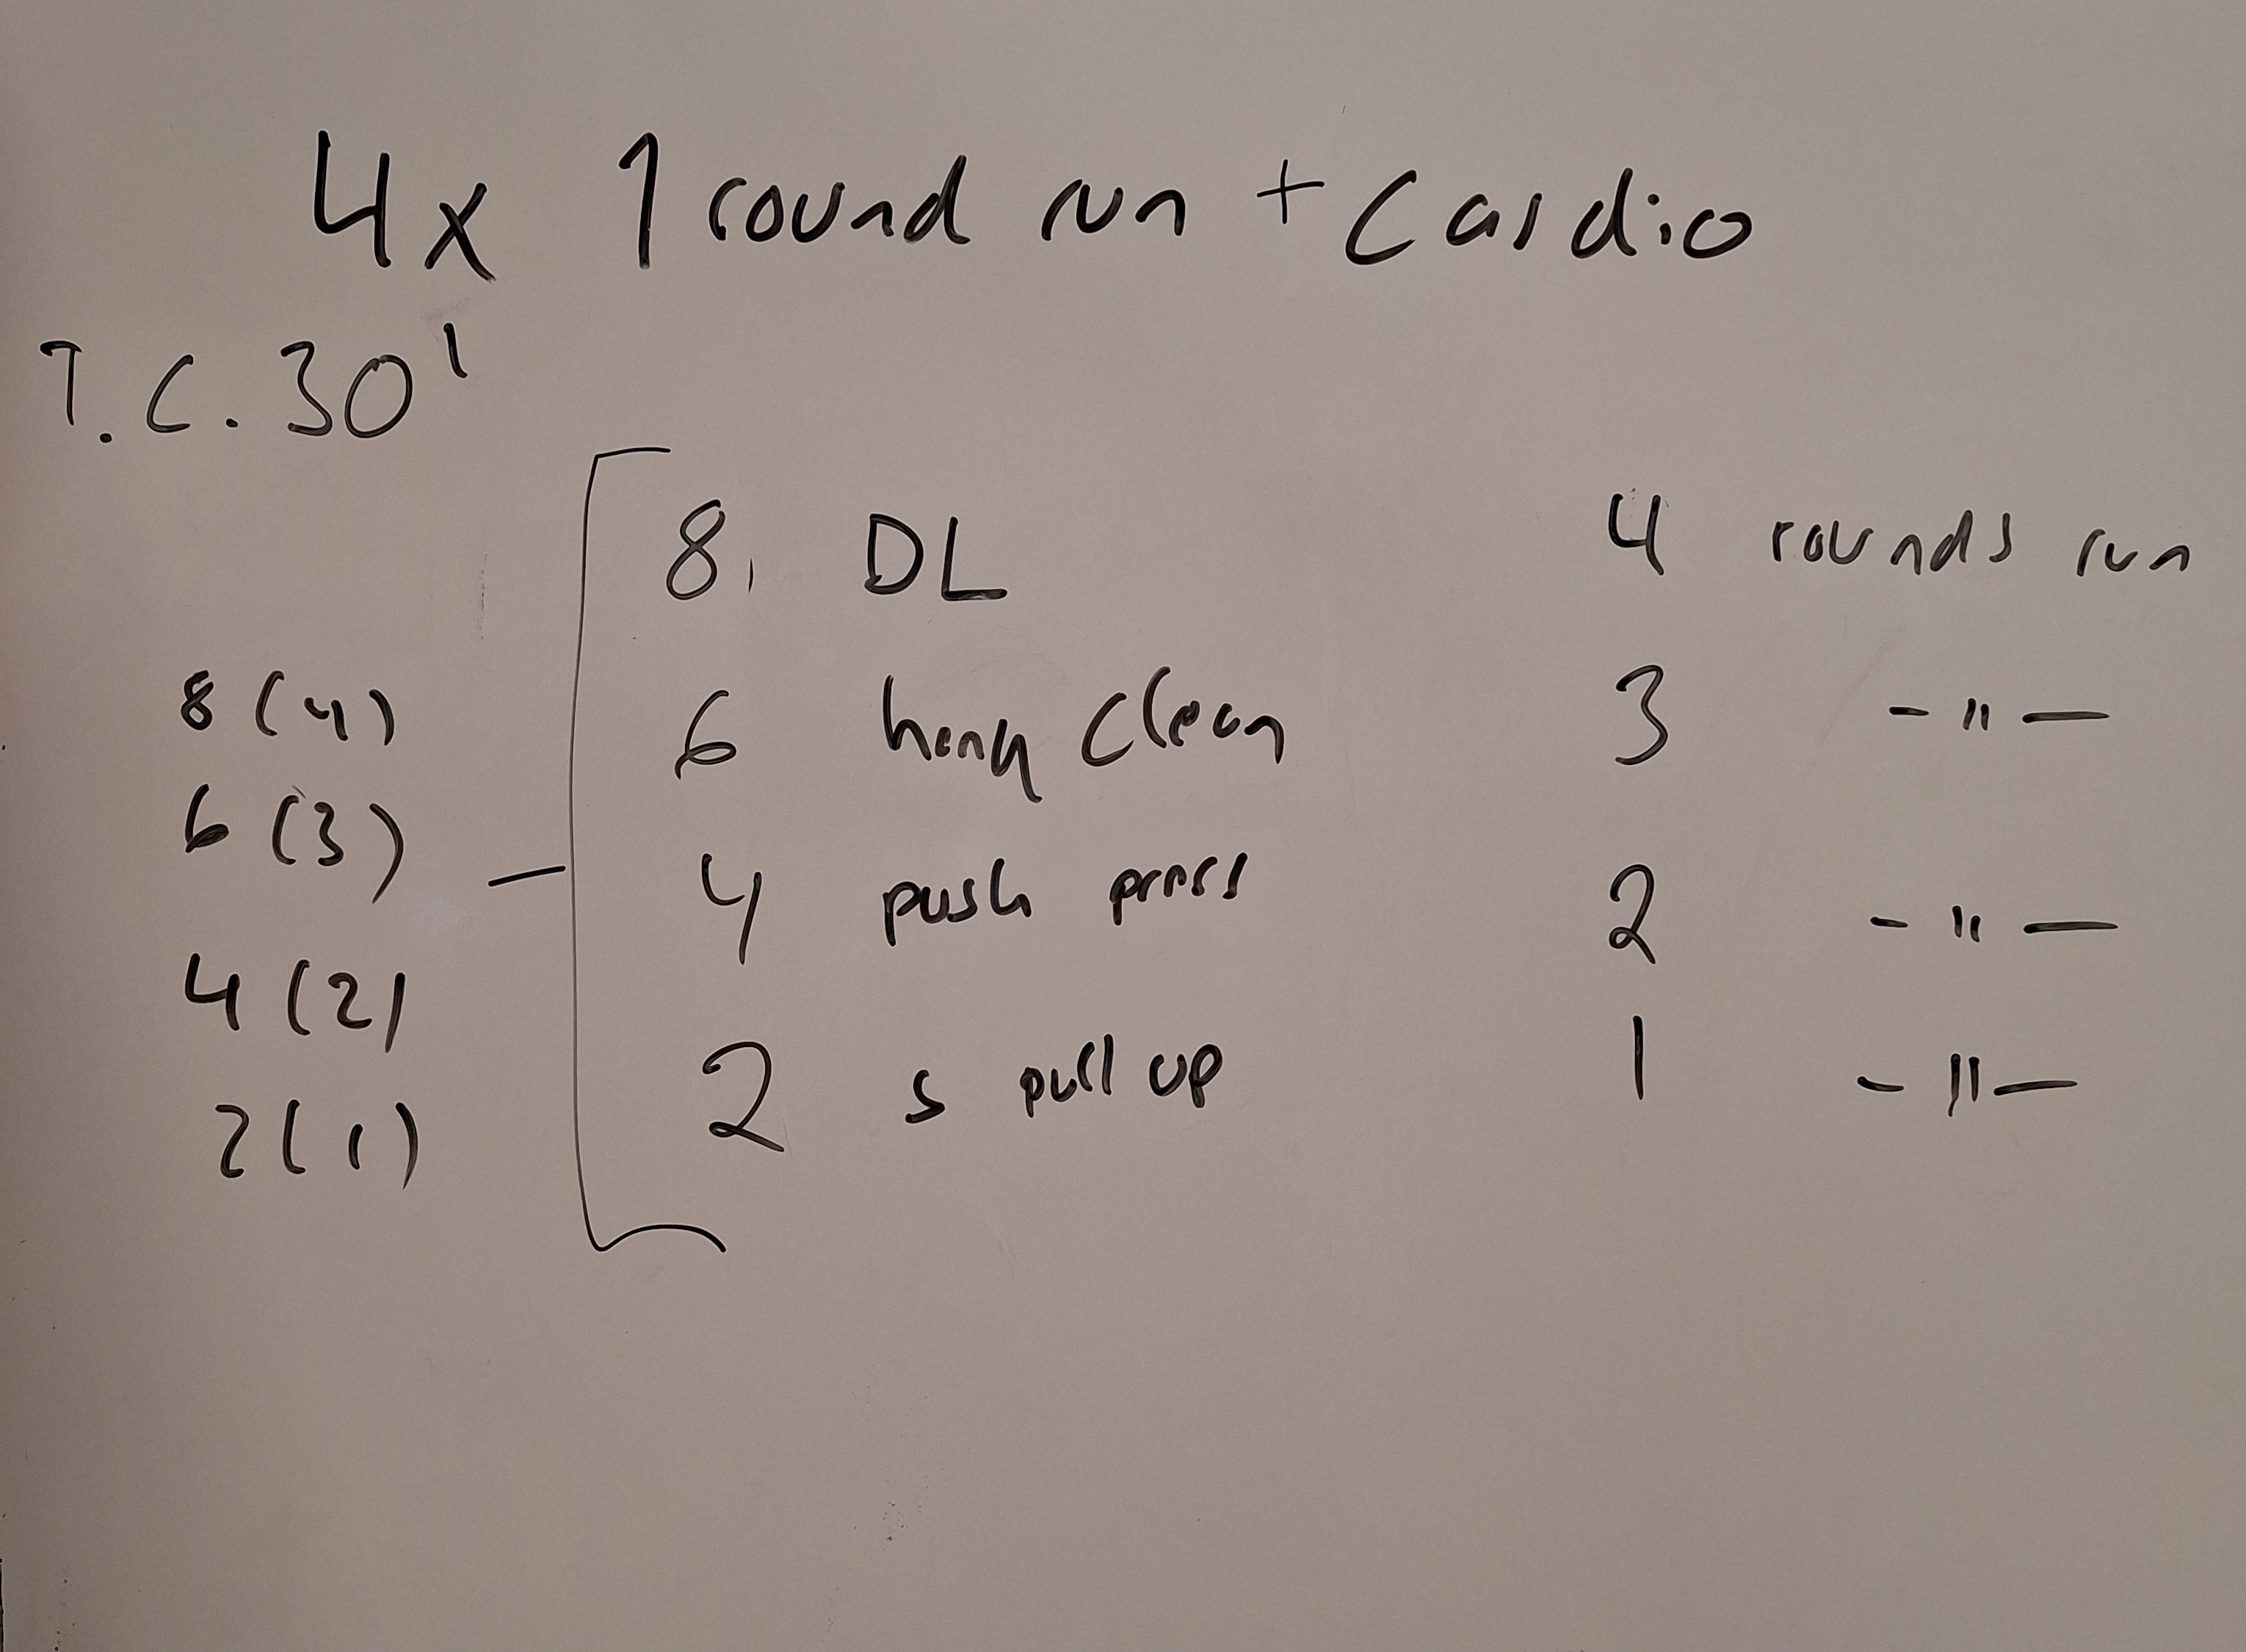 4x 1 round run + Cardio
T.C. 30'
8. DL 4 rounds run
8 (4) 6 hang clean 3 - " -
6 (3) 4 push press 2 - " -
4 (2)
2 s pull up 1 - " -
2 (1)